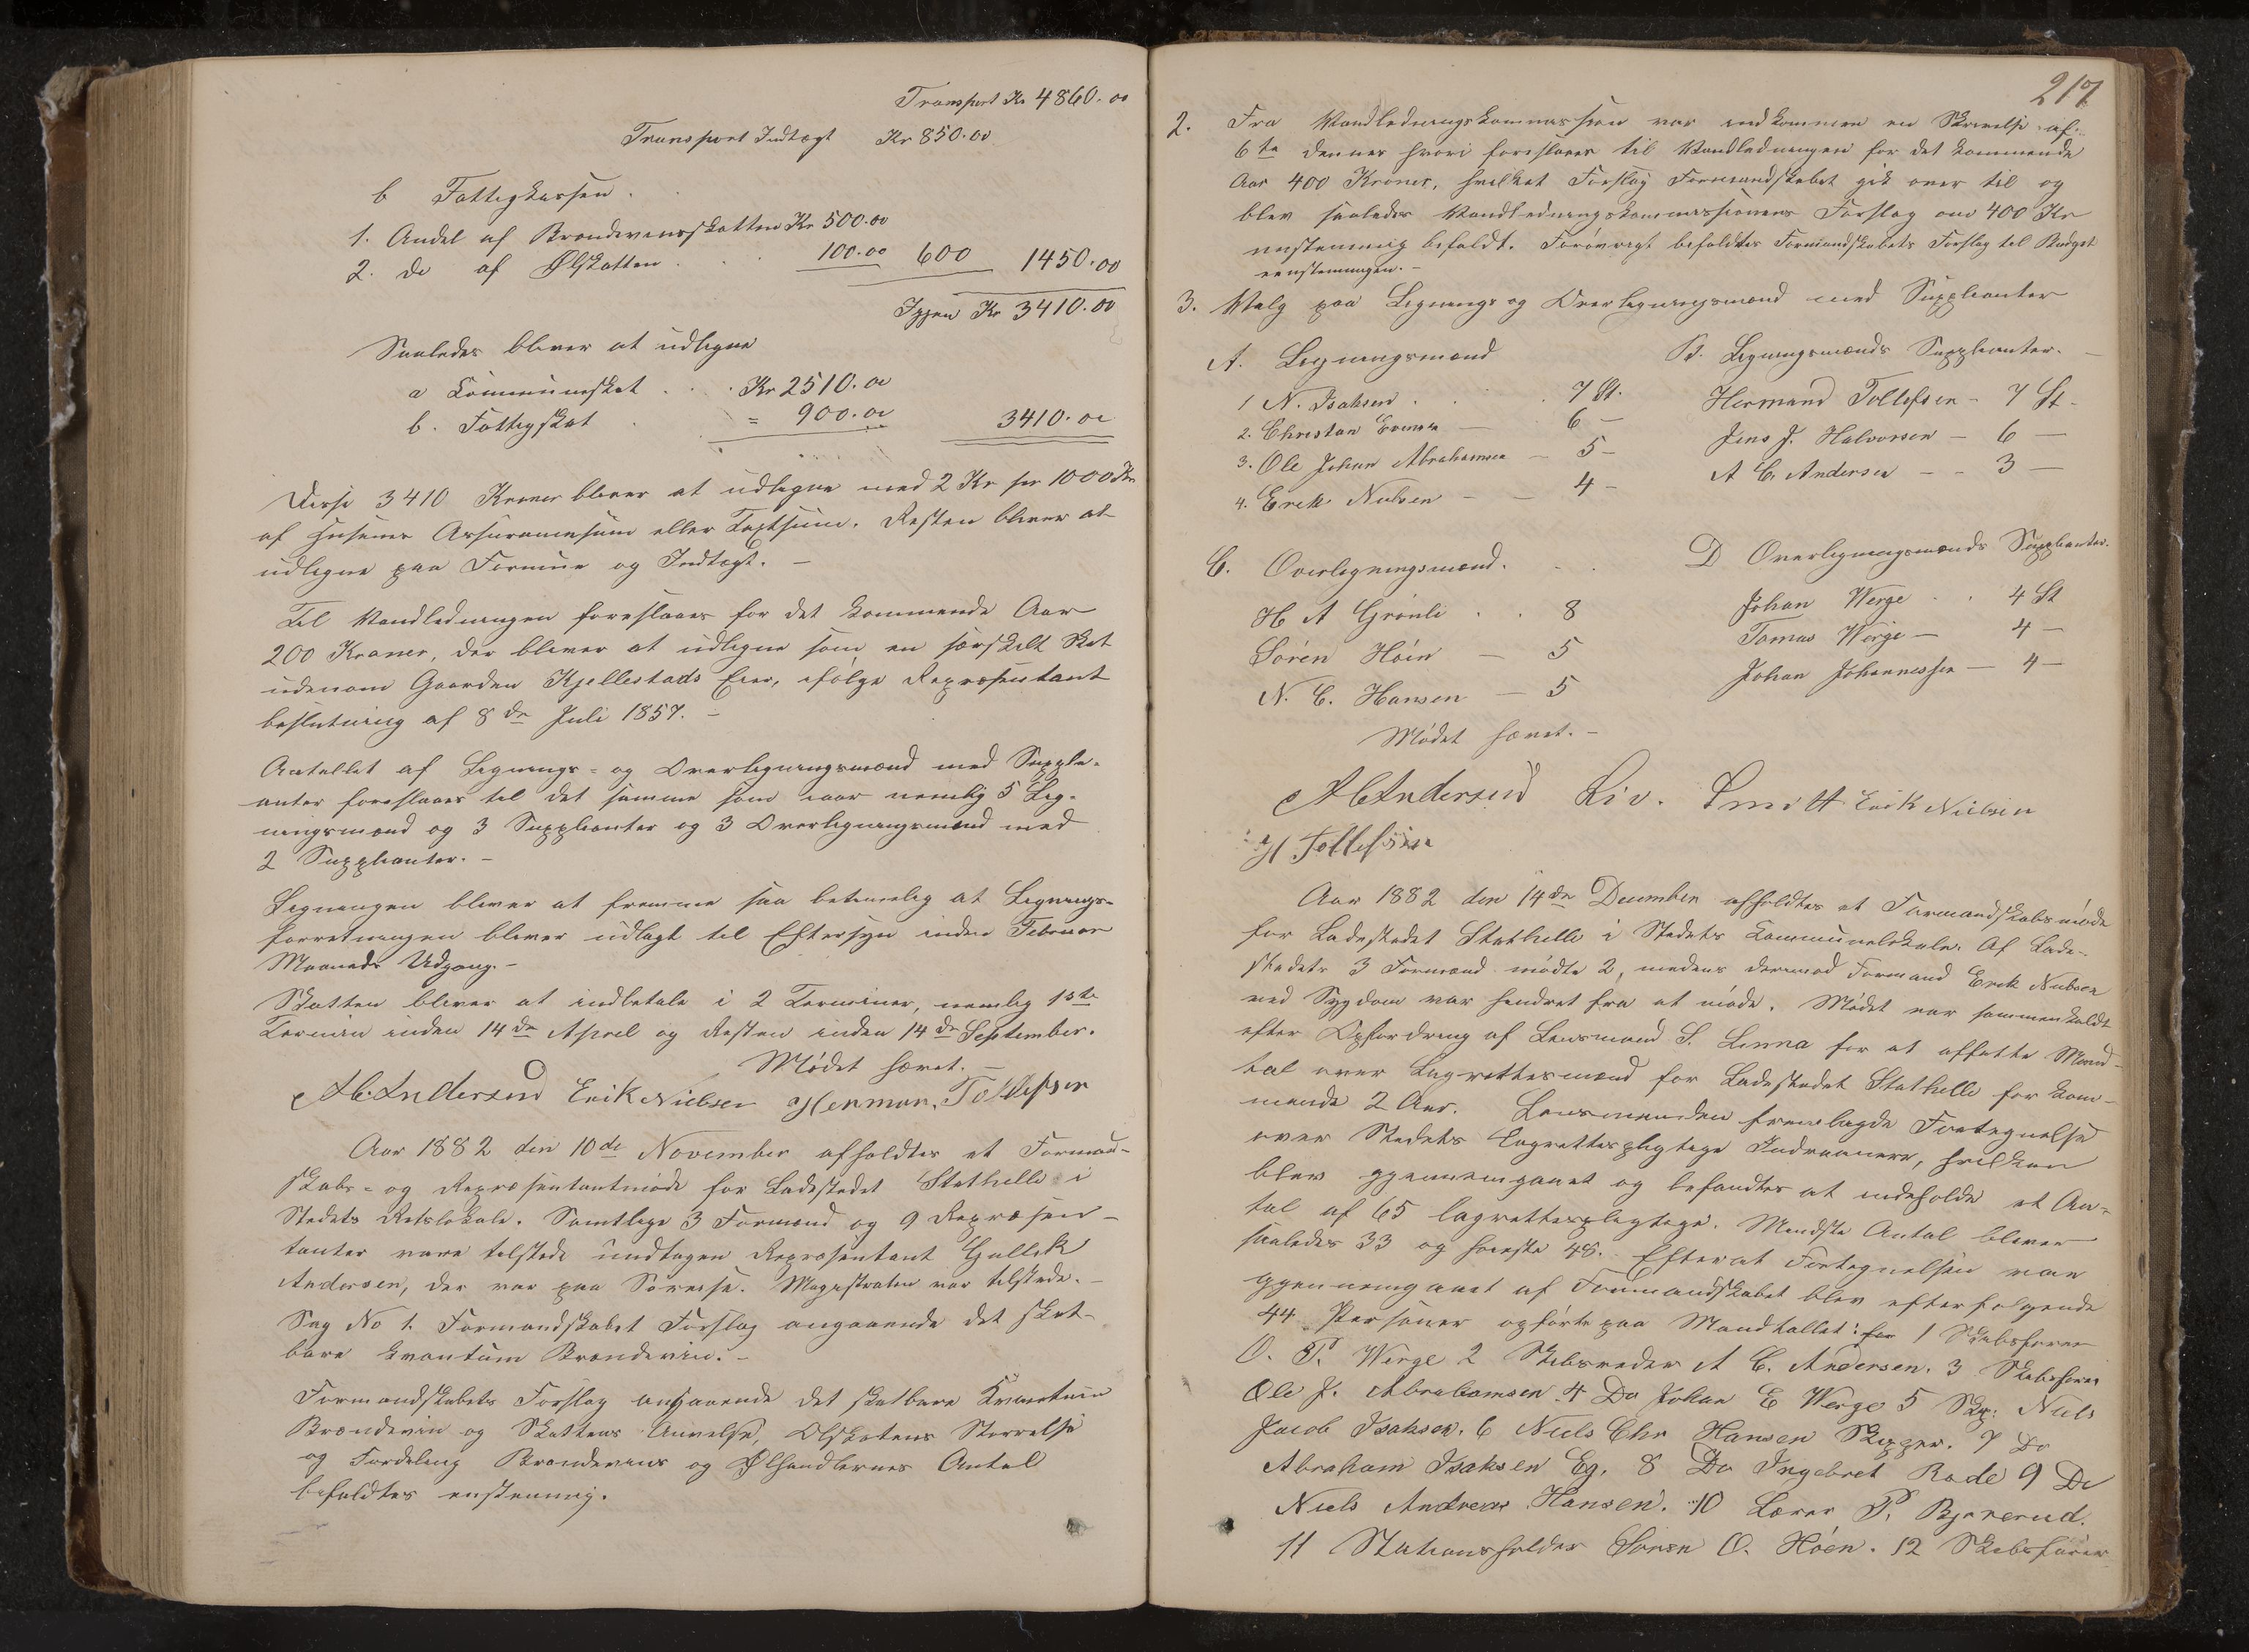 Transport Kr 4860.00
Transport Indtægt Kr 850.00
b Fattigkassen.
1. Andel af Brændevinsskatten Kr 500.00
2. do af Ølskatten . . . 100.00 600 1450.00
Igjen Kr 3410.00
Saaledes bliver at udligne
a Communeskat . . . Kr 2510.00
b. Fattigskat . = 900.00 3410.00
Disse 3410 Kroner bliver at udligne med 2 Kr pr 1000 Kr
af Husenes Assurancesum eller Taxtsum. Resten bliver at
udligne paa Formue og Indtægt. –
Til Vandledningen foreslaaes for det kommende Aar
200 Kroner, der bliver at udligne som en særskilt Skat
udenom Gaarden Kjellestads Eier, ifølge Repræsentant
beslutning af 8de Juli 1857. –
Antallet af Lignings- og Overligningsmænd med Supple-
anter foreslaaes til det samme som iaar nemlig 5 Lig-
ningsmænd og 3 Suppleanter og 3 Overligningsmænd med
2 Suppleanter. –
Ligningen bliver at fremme saa betimelig at Lignings-
forretningen bliver udlagt til Eftersyn inden Februar
Maaneds Udgang. –
Skatten bliver at indbetale i 2 Terminer, nemlig 1ste
Termin inden 14de April og Resten inden 14de September.
Mødet hævet. –
A C. Andersen Erik Nielsen Herman Tollefsen
Aar 1882 den 10de November afholdtes et Formand-
skabs- og Repræsentantmøde for Ladestedet Stathelle i
Stedets Retslokale. Samtlige 3 Formænd og 9 Repræsen-
tanter vare tilstede undtagen Repræsentant Gullik
Andersen, der var paa Søreise. Magistraten var tilstede. –
Sag No 1. Formandskabet Forslag angaaende det skat-
bare Kvantum Brændevin. –
Formandskabets Forslag angaaende det skatbare Kvantum
Brændevin og Skattens Anvelse, Ølskatens Størrelse
og Fordeling Brændevins og Ølhandlernes Antal
befaldtes enstemmig.
217
2. Fra Vandledningskommission var indkommen en Skrivelse af
6te dennes hvori foreslaaes til Vandledningen for det kommende
Aar 400 Kroner, hvilket Forslag Formandskabet gik over til og
blev saaledes Vandledningskommissionens Forslag om 400 Kr
enstemmig befaldt. Forøvrigt befaldtes Formandskabets Forslag til Budget
eenstemmigen. –
3. Valg paa Lignings og Overligningsmænd med Suppleanter
A. Ligningsmænd
1 N. Isaksen . . . 7 St.
2. Christan Evensen – 6 –
3. Ole Johan Abrahamsen – 5 –
4. Erik Nielsen – – 4 –
B. Ligningsmænds Suppleanter. –
Hermand Tollefsen – 7 St.
Jens J. Halvorsen – 6 –
A C. Andersen – – 3 –
C. Overligningsmænd. . .
H A Grønli . . 8
Søren Høen – 5
N. C. Hansen – 5
D Overligningsmænds Suppleanter.
Johan Werge . . 4 St
Tomas Werge – 4 –
Johan Johannessen – 4 –
Mødet hævet. –
A C Andersen Liv. Smitt Erik Nielsen
H Tollefsen
Aar 1882 den 14de December afholdtes et Formandskabsmøde
for Ladestedet Stathelle i Stedets Kommunelokale. Af Lade-
stedets 3 Formænd mødte 2, medens derimod Formand Erik Nielsen
ved Sygdom var hindret fra at møde. Mødet var sammenkaldt
efter Opfordring af Lensmand S. Linna for at affatte Mand-
tal over Lagrettesmænd for Ladestedet Stathelle for kom-
mende 2 Aar. Lensmanden fremlagde Fortegnelse
over Stedets Lagrettespligtige Indvaanere, hvilken
blev gjennemgaaet og befandtes at indeholde et An-
tal af 65 lagrettespligtige. Mindste Antal bliver
saaledes 33 og høieste 48. Efterat Fortegnelsen var
gjennemgaaet af Formandskabet blev efterfølgende
44 Personer opførte paa Mandtallet: for 1 Skibsfører
O. T. Werge 2 Skibsreder A C. Andersen. 3 Skibsfører
Ole J. Abrahamsen 4 Do Johan E Werge 5 Skp: Niels
Jacob Isaksen. 6 Niels Chr Hansen Skipper. 7 Do
Abraham Isaksen Eg. 8 Do Ingebret Rode 9 Do
Niels Andreas Hansen. 10 Lærer P. Bjererud.
11 Stationsholder Søren O. Høen. 12 Skibsfører